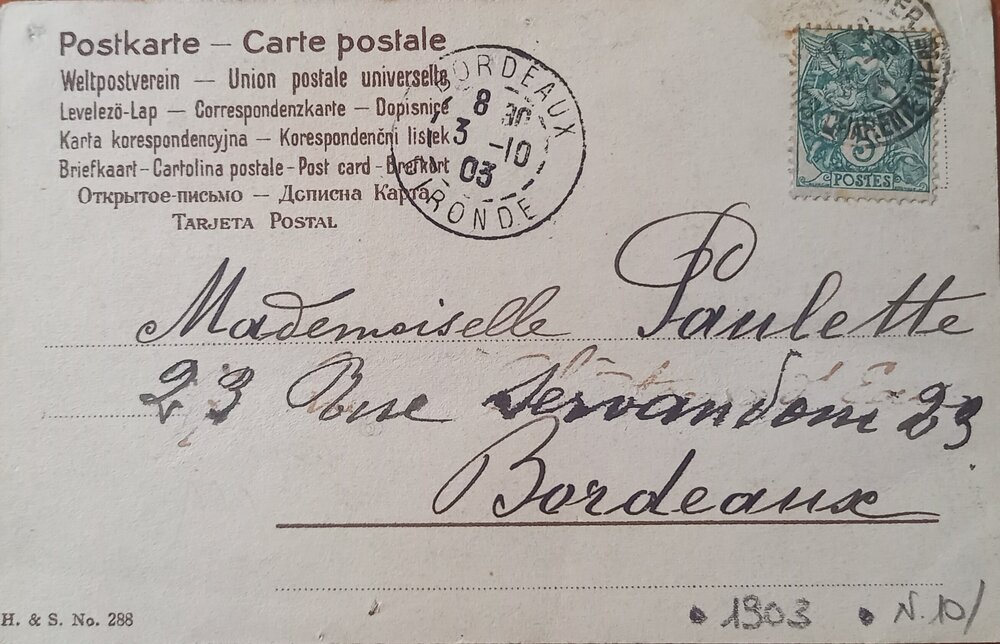 Postkarte — Carte postale
Weltpostverein — Union postale universelle
Levelező-Lap — Correspondenzkarte — Dopisnice
Karta korespondencyjna — Korespondenční lístek
Briefkaart – Cartolina postale – Post card – Brefkort
Открытое-письмо — Дописна Карта
TARJETA POSTAL
BORDEAUX
8 30
3 -10
03
GIRONDE
5
POSTES
Mademoiselle Paulette
23 Rue Servandoni 23
Bordeaux
H. & S. No. 288
1903
N. 10/